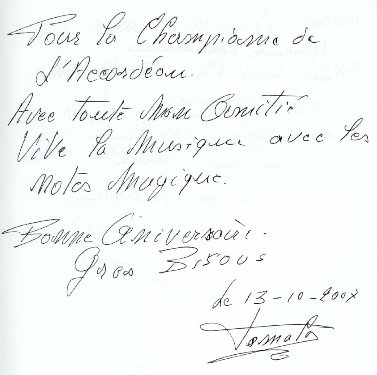 Pour la Championne de
L'Accordéon.
Avec toute Mon Amitié
Vive la Musique avec les
Notes Magique.
Bonne Aniversaire.
Gros Bisous
Le 13-10-2007